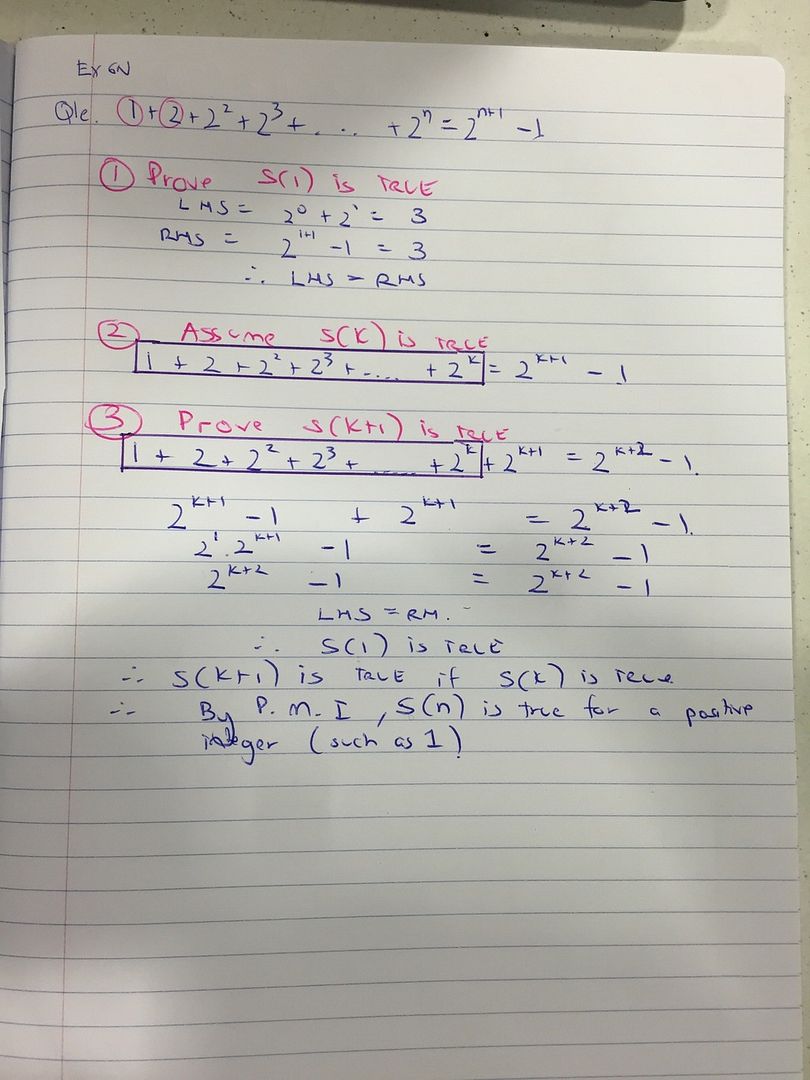 Ex 6N
Q1e. 1 + 2 + 2² + 2³ + . . . . + 2ⁿ = 2ⁿ⁺¹ - 1
① Prove S(1) is TRUE
LHS = 2⁰ + 2¹ = 3
RHS = 2¹⁺¹ - 1 = 3
∴ LHS = RHS
② Assume S(K) is TRUE
1 + 2 + 2² + 2³ + ..... + 2ᵏ = 2ᵏ⁺¹ - 1
③ Prove S(K+1) is TRUE
1 + 2 + 2² + 2³ + ...... + 2ᵏ + 2ᵏ⁺¹ = 2ᵏ⁺² - 1.
2ᵏ⁺¹ - 1 + 2ᵏ⁺¹ = 2ᵏ⁺² - 1.
2¹ . 2ᵏ⁺¹ - 1 = 2ᵏ⁺² - 1
2ᵏ⁺² - 1 = 2ᵏ⁺² - 1
LHS = RH.
∴ S(1) is TRUE
∴ S(K+1) is TRUE if S(K) is TRUE
∴ By P.M.I, S(n) is true for a positive
integer (such as 1)